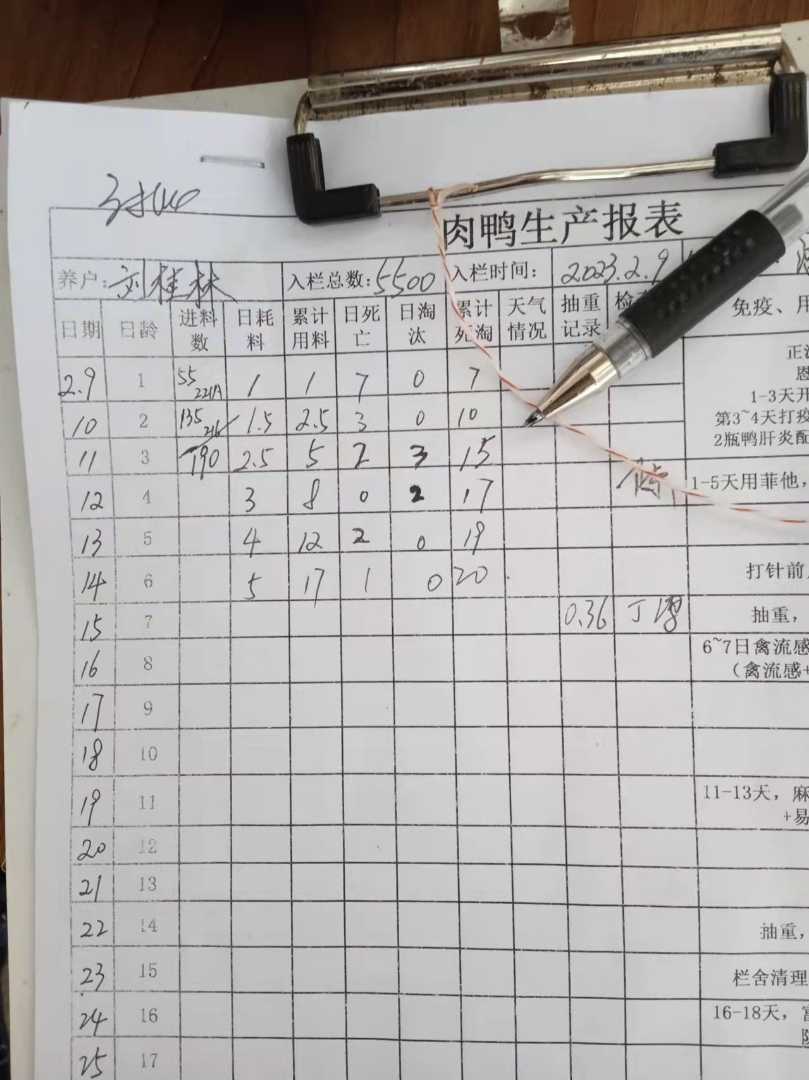 肉鸭生产报表
养户: 刘桂林 入栏总数: 5500 入栏时间: 2023.2.9
日期 日龄 进料数 日耗料 累计用料 日死亡 日淘汰 累计死淘 天气情况 抽重记录 免疫、用
2.9 1 55 221A 1 1 7 0 7
正
1-3天开
10 2 135 216 1.5 2.5 3 0 10 第3~4天打疫
2瓶鸭肝炎配
11 3 190 2.5 5 2 3 15
12 4 3 8 0 2 17 1-5天用菲他,
13 5 4 12 2 0 19
14 6 5 17 1 0 20 打针前
15 7 0.36 抽重,
16 8 6~7日禽流感
(禽流感+
17 9
18 10
19 11 11-13天,麻
+易
20 12
21 13
22 14 抽重,
23 15 栏舍清理
24 16 16-18天,
25 17